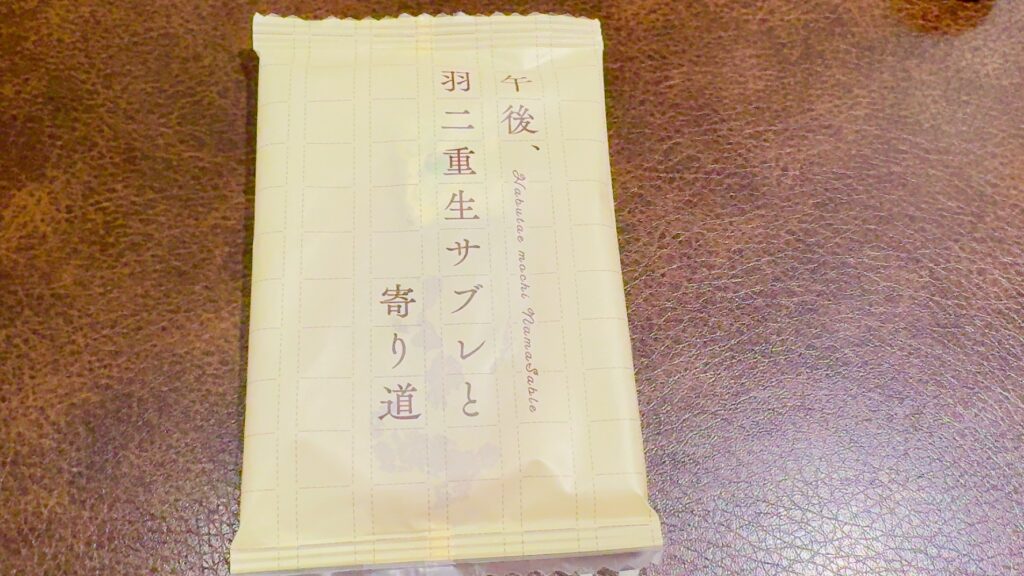 午後、
Habutae mochi NamaSable
羽二重生サブレと
寄り道